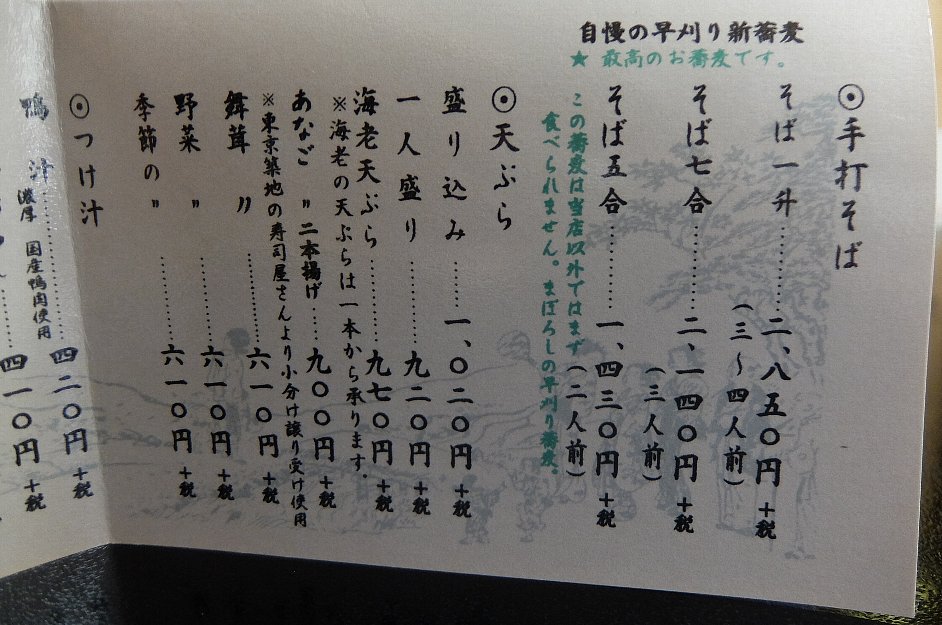 自慢の早刈り新蕎麦
★ 最高のお蕎麦です。
◉手打そば
そば一升………二、八五〇円+税
(三〜四人前)
そば七合………二、一四〇円+税
(三人前)
そば五合………一、四三〇円+税
(二人前)
この蕎麦は当店以外ではまず
食べられません。まぼろしの早刈り蕎麦。
◉天ぷら
盛り込み………一、〇二〇円+税
一人盛り………九二〇円+税
海老天ぷら………九七〇円+税
※海老の天ぷらは一本から承ります.
あなご 〃 二本揚げ……九〇〇円+税
※東京築地の寿司屋さんより小分け譲り受け使用
舞茸 〃………六一〇円+税
野菜 〃………六一〇円+税
季節の 〃………六一〇円+税
◉つけ汁
鴨 汁………四二〇円+税
濃厚 国産鴨肉使用
四一〇円